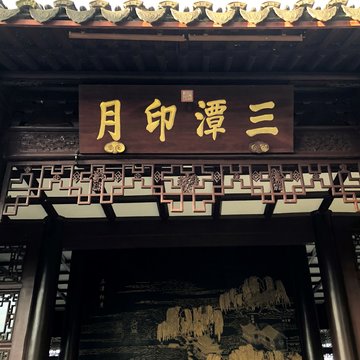 三潭印月